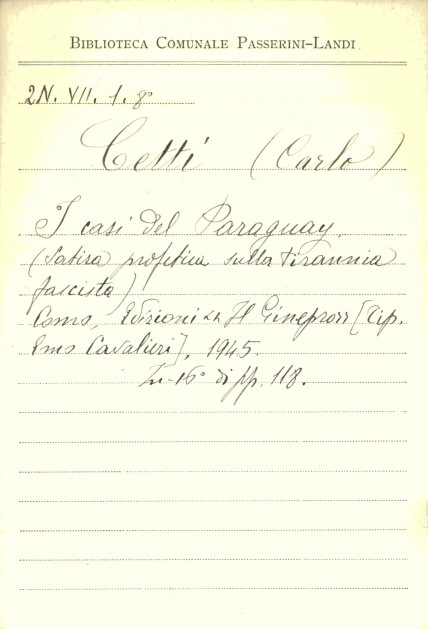 BIBLIOTECA COMUNALE PASSERINI-LANDI
2N. VII. 1. 8°
Cetti (Carlo)
I casi del Paraguay.
(Satira profetica sulla tirannia
fascista)
Como, Edizioni "Il Ginepro" [Tip.
Emo Cavalieri], 1945.
In-16° di pp. 118.